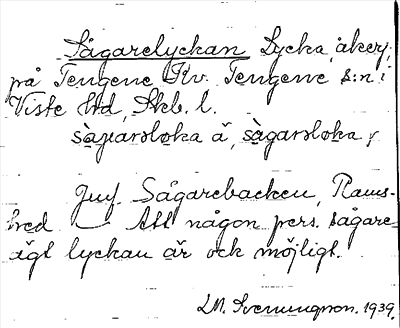 Sågarelyckan Lycka, åker,
på Tengene Kv. Tengene s:n i
Viste hd, Skb. l.
Jmf. Sågarebacken, Rams-
hed — Att någon pers. sågare
ägt lyckan är ock möjligt.
LM. Svenungsson. 1939.